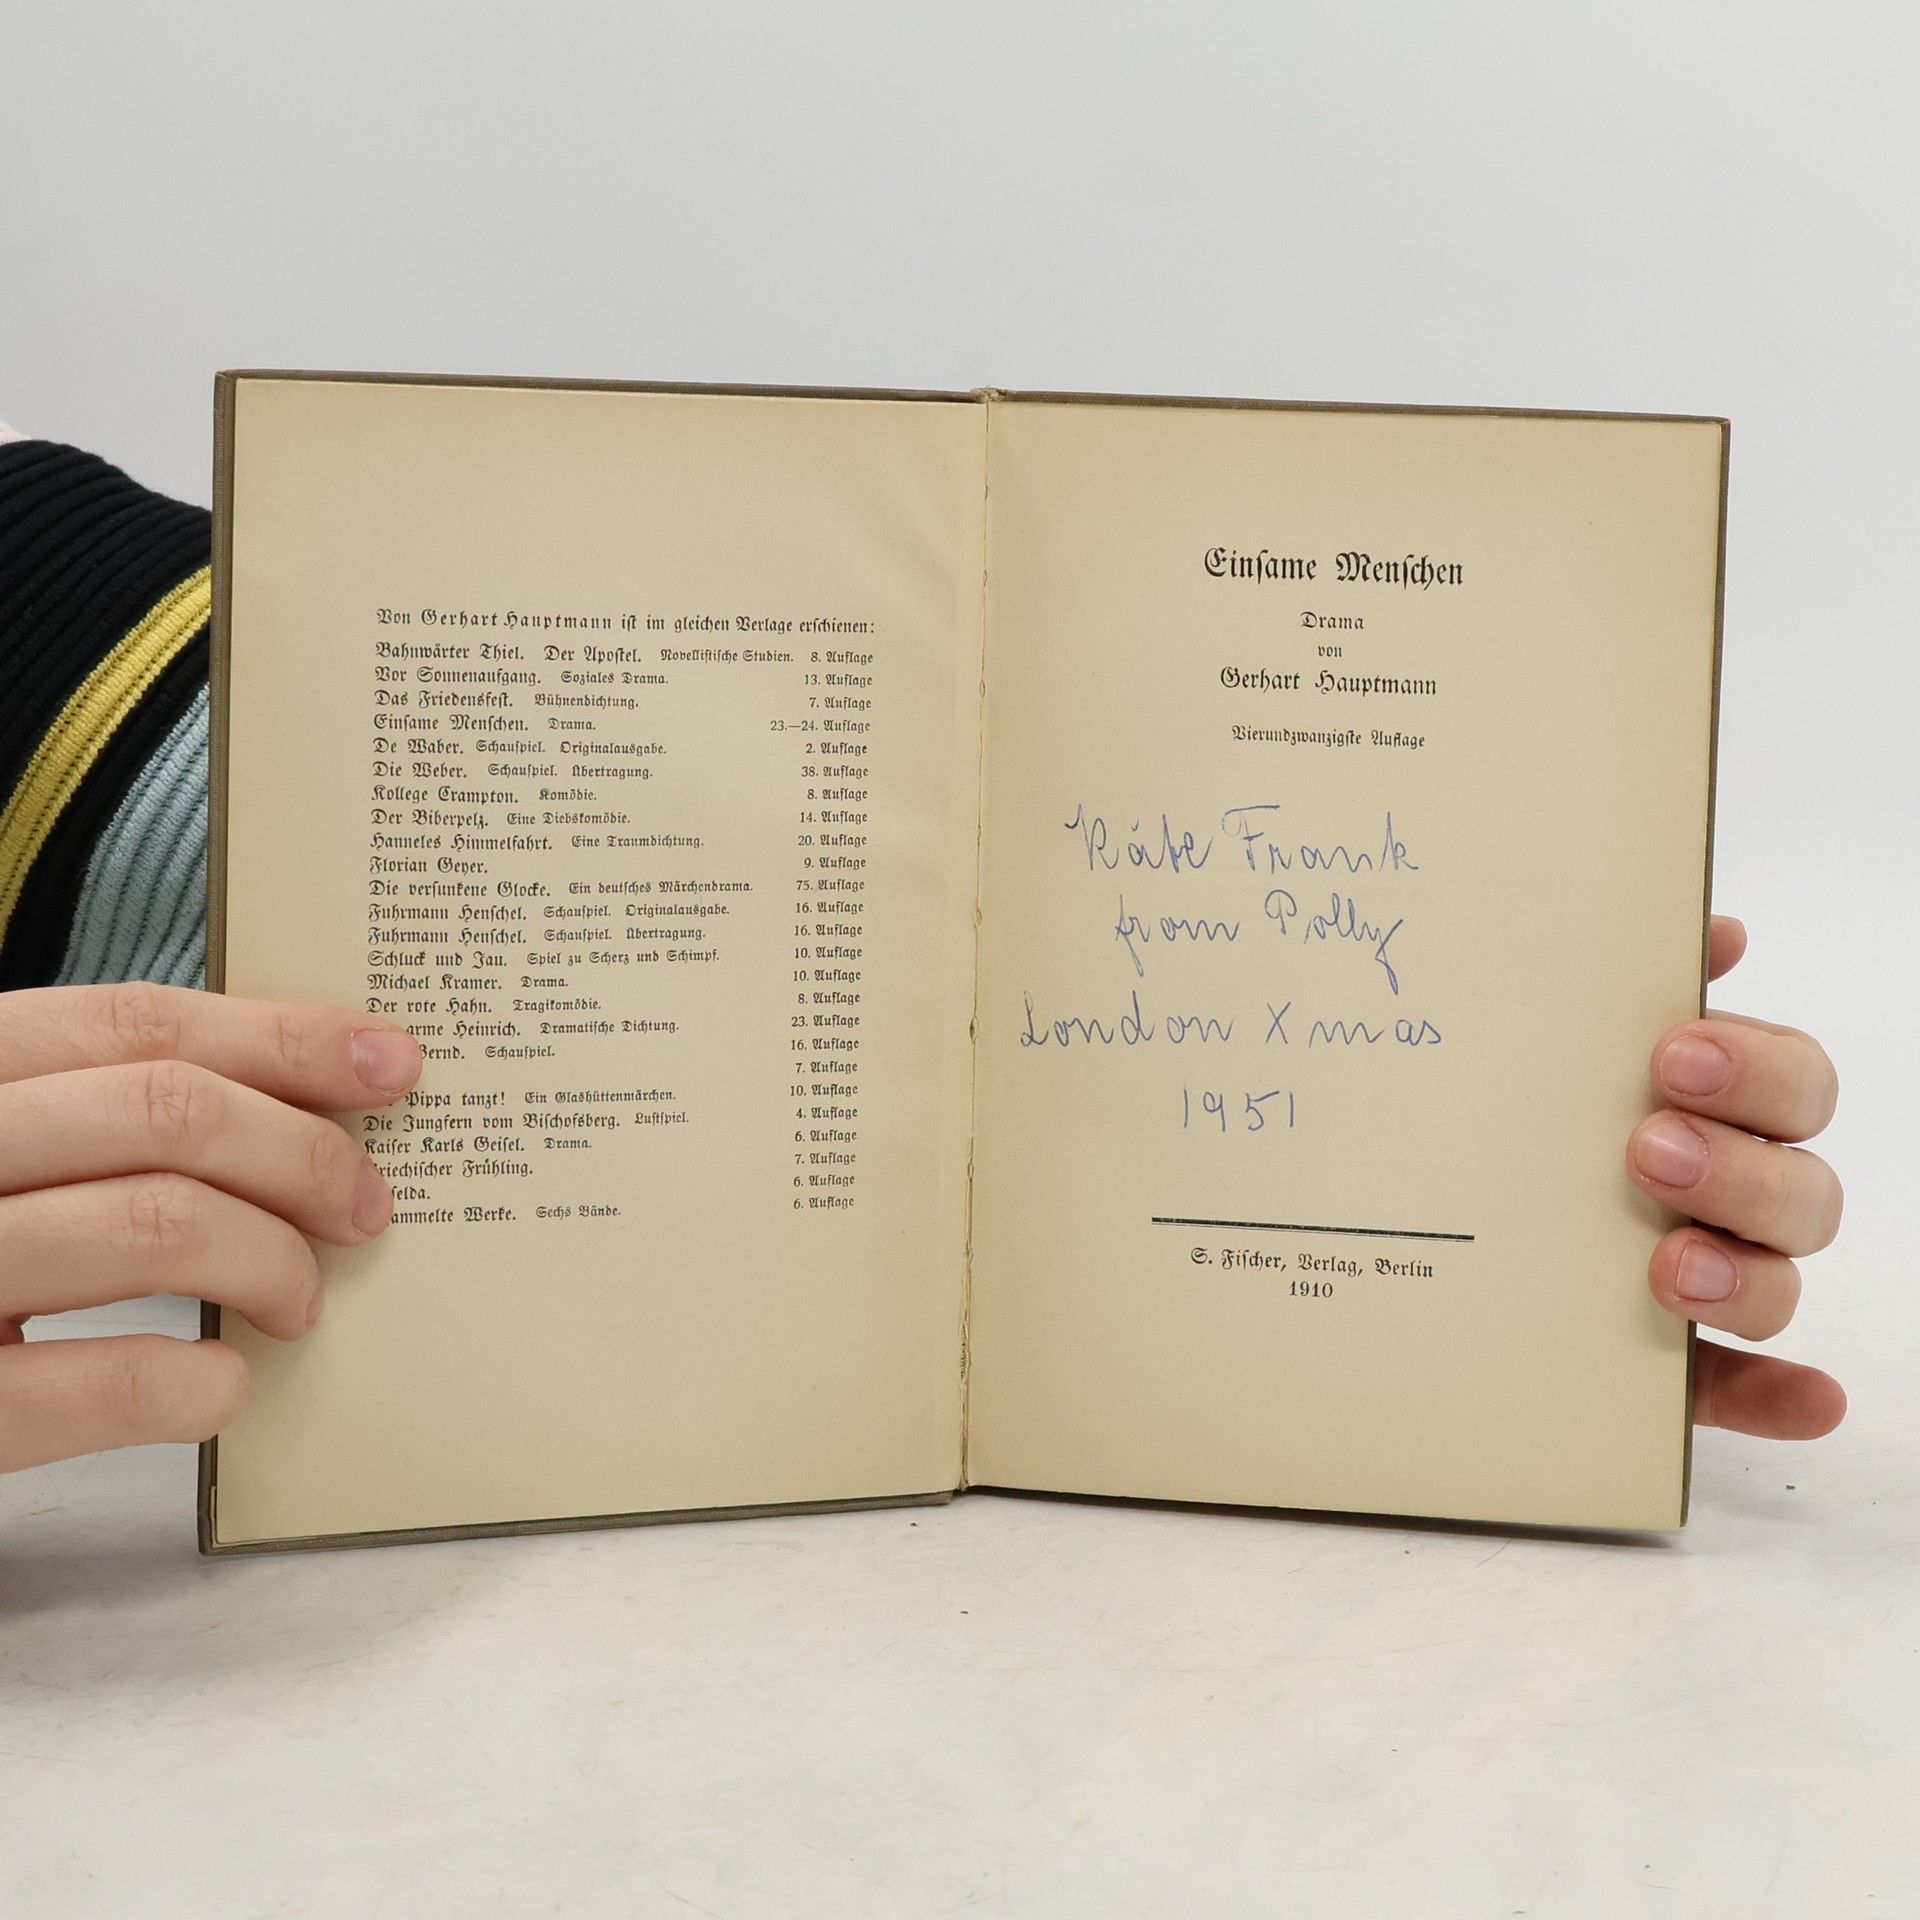 Von Gerhart Hauptmann ist im gleichen Verlage erschienen:
Bahnwärter Thiel. Der Apostel. Novellistische Studien. 8. Auflage
Vor Sonnenaufgang. Soziales Drama. 13. Auflage
Das Friedensfest. Bühnendichtung. 7. Auflage
Einsame Menschen. Drama. 23.—24. Auflage
De Waber. Schauspiel. Originalausgabe. 2. Auflage
Die Weber. Schauspiel. Übertragung. 38. Auflage
Kollege Crampton. Komödie. 8. Auflage
Der Biberpelz. Eine Diebskomödie. 14. Auflage
Hanneles Himmelfahrt. Eine Traumdichtung. 20. Auflage
Florian Geyer. 9. Auflage
Die versunkene Glocke. Ein deutsches Märchendrama. 75. Auflage
Fuhrmann Henschel. Schauspiel. Originalausgabe. 16. Auflage
Fuhrmann Henschel. Schauspiel. Übertragung. 16. Auflage
Schluck und Jau. Spiel zu Scherz und Schimpf. 10. Auflage
Michael Kramer. Drama. 10. Auflage
Der rote Hahn. Tragikomödie. 8. Auflage
arme Heinrich. Dramatische Dichtung. 23. Auflage
Bernd. Schauspiel. 16. Auflage
7. Auflage
Pippa tanzt! Ein Glashüttenmärchen. 10. Auflage
Die Jungfern vom Bischofsberg. Lustspiel. 4. Auflage
Kaiser Karls Geisel. Drama. 6. Auflage
riechischer Frühling. 7. Auflage
selda. 6. Auflage
ammelte Werke. Sechs Bände. 6. Auflage
Einsame Menschen
Drama
von
Gerhart Hauptmann
Vierundzwanzigste Auflage
Käte Frank
from Polly
London Xmas
1951
S. Fischer, Verlag, Berlin
1910